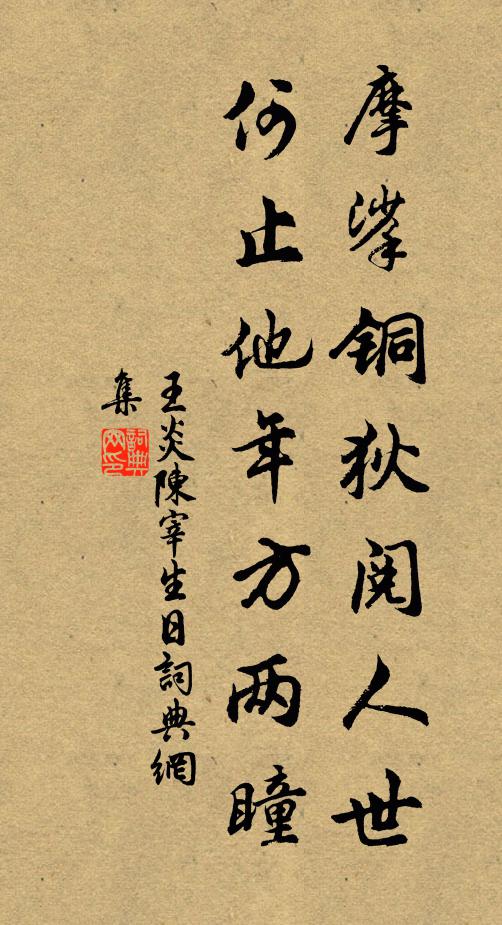 摩挲铜狄阅人世
何止他年方两瞳
王炎陳宰生日詞典網
集
詞典網印